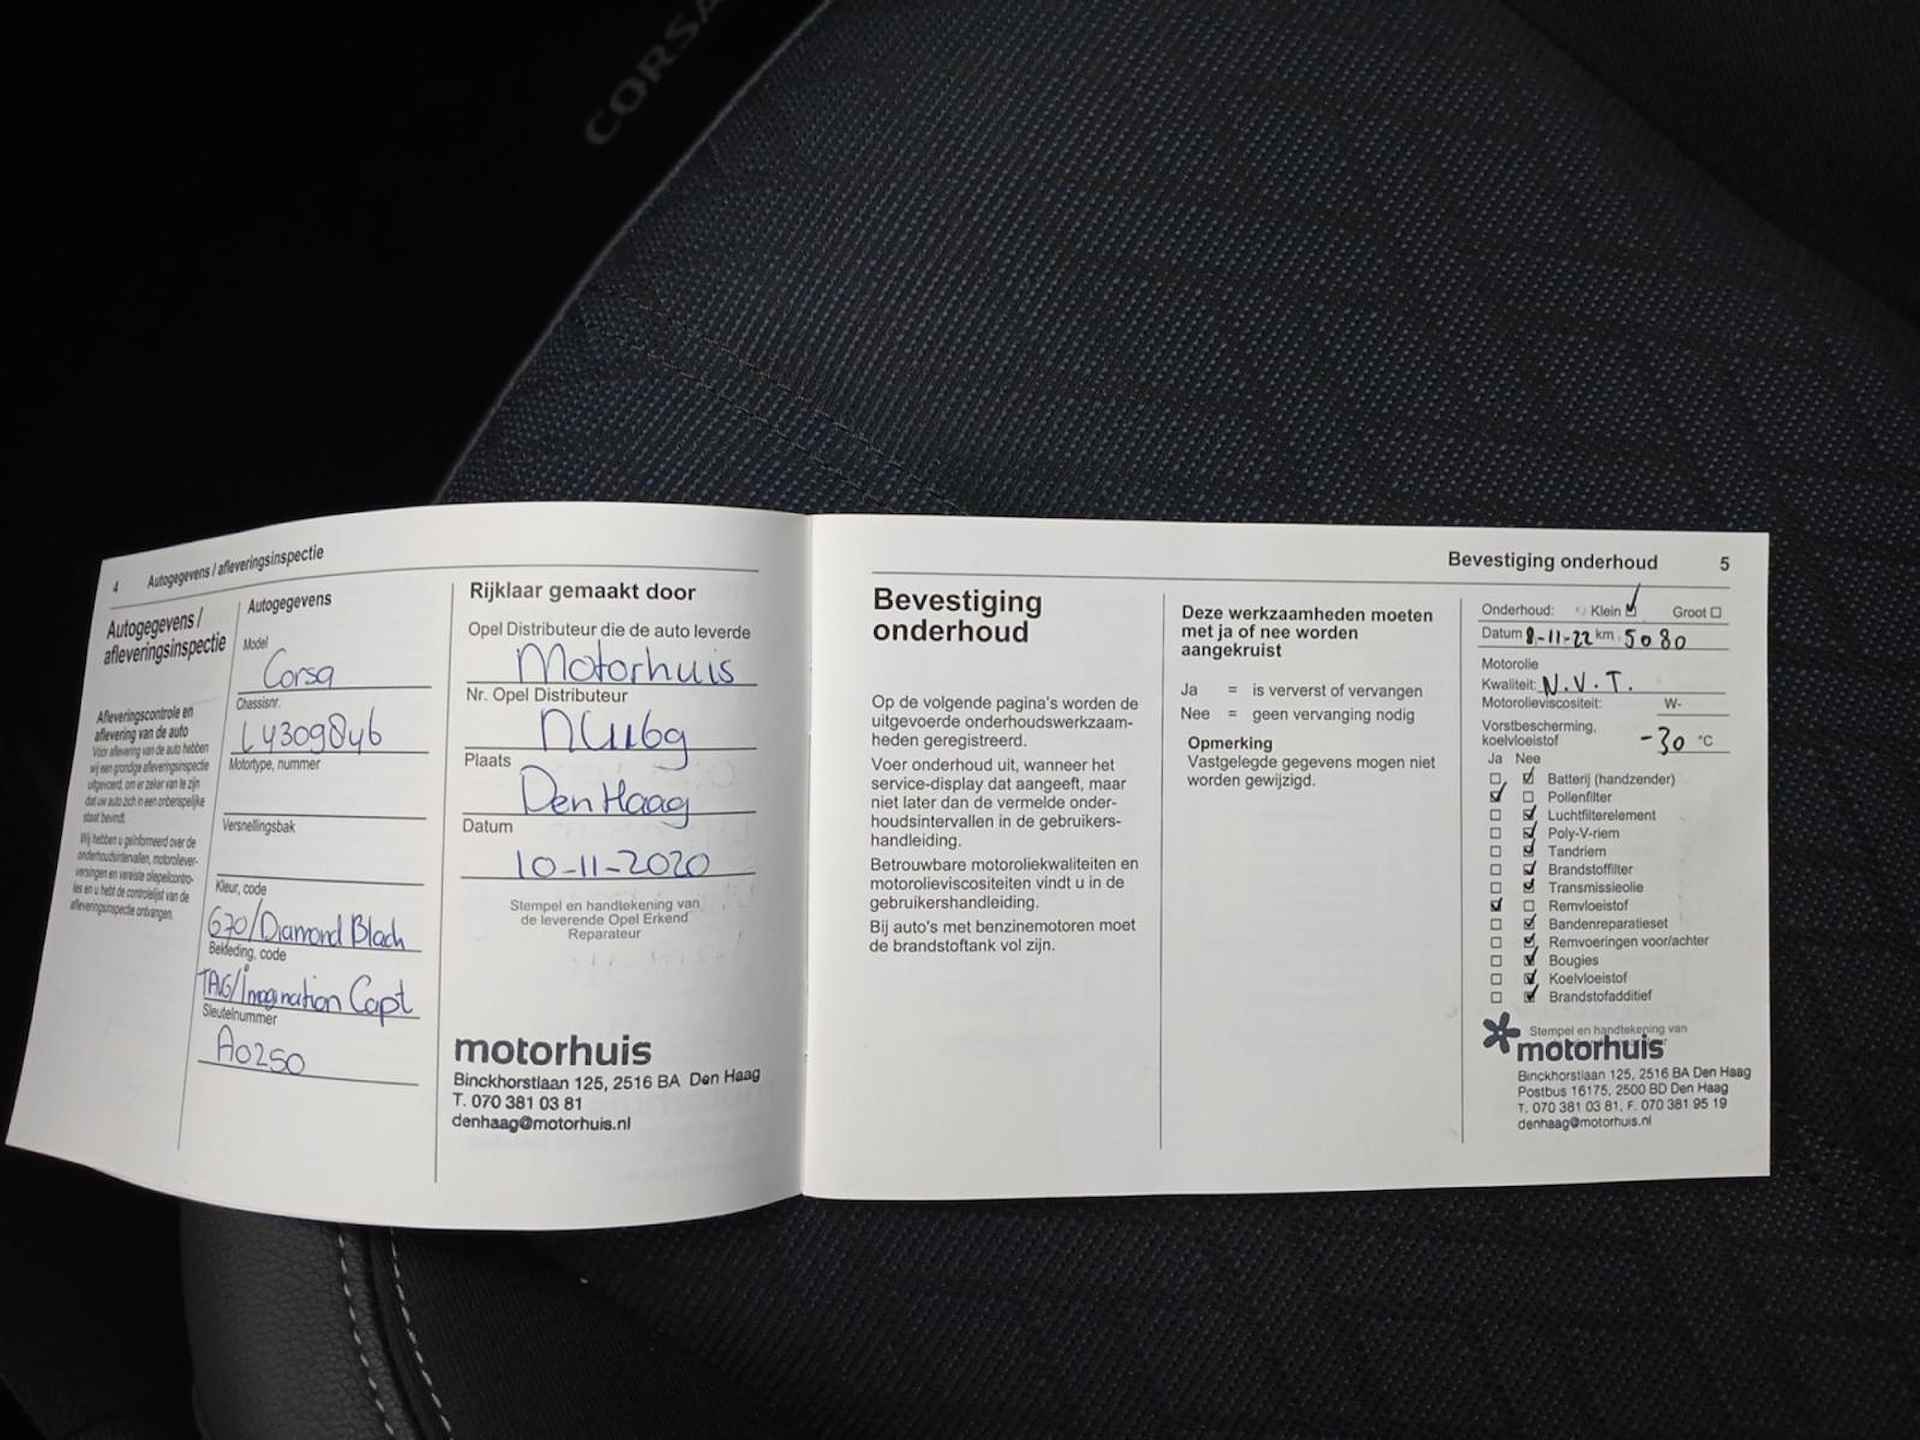 CORSA
4 Autogegevens / afleveringsinspectie
Autogegevens /
afleveringsinspectie
Afleveringscontrole en
aflevering van de auto
Vóór aflevering van de auto hebben
wij een grondige afleveringsinspectie
uitgevoerd, om er zeker van te zijn
dat uw auto zich in een onberispelijke
staat bevindt.
Wij hebben u geïnformeerd over de
onderhoudsintervallen, motoroliever-
versingen en vereiste oliepeilcontro-
les en u hebt de controlelijst van de
afleveringsinspectie ontvangen.
Autogegevens
Model
Corsa
Chassisnr.
L4309846
Motortype, nummer
Versnellingsbak
Kleur, code
G70/Diamond Black
Bekleding, code
TAG/Imagination Capt
Sleutelnummer
A0250
Rijklaar gemaakt door
Opel Distributeur die de auto leverde
Motorhuis
Nr. Opel Distributeur
Plaats
Den Haag
Datum
10-11-2020
Stempel en handtekening van
de leverende Opel Erkend
Reparateur
motorhuis
Binckhorstlaan 125, 2516 BA Den Haag
T. 070 381 03 81
denhaag@motorhuis.nl
Bevestiging onderhoud 5
Bevestiging
onderhoud
Op de volgende pagina's worden de
uitgevoerde onderhoudswerkzaam-
heden geregistreerd.
Voer onderhoud uit, wanneer het
service-display dat aangeeft, maar
niet later dan de vermelde onder-
houdsintervallen in de gebruikers-
handleiding.
Betrouwbare motoroliekwaliteiten en
motorolieviscositeiten vindt u in de
gebruikershandleiding.
Bij auto's met benzinemotoren moet
de brandstoftank vol zijn.
Deze werkzaamheden moeten
met ja of nee worden
aangekruist
Ja = is ververst of vervangen
Nee = geen vervanging nodig
Opmerking
Vastgelegde gegevens mogen niet
worden gewijzigd.
Onderhoud: Klein Groot
Datum 8-11-22 km 5080
Motorolie
Kwaliteit: N.V.T.
Motorolieviscositeit: W-
Vorstbescherming,
koelvloeistof -30 °C
Ja Nee
Batterij (handzender)
Pollenfilter
Luchtfilterelement
Poly-V-riem
Tandriem
Brandstoffilter
Transmissieolie
Remvloeistof
Bandenreparatieset
Remvoeringen voor/achter
Bougies
Koelvloeistof
Brandstofadditief
Stempel en handtekening van
motorhuis
Binckhorstlaan 125, 2516 BA Den Haag
Postbus 16175, 2500 BD Den Haag
T. 070 381 03 81, F. 070 381 95 19
denhaag@motorhuis.nl